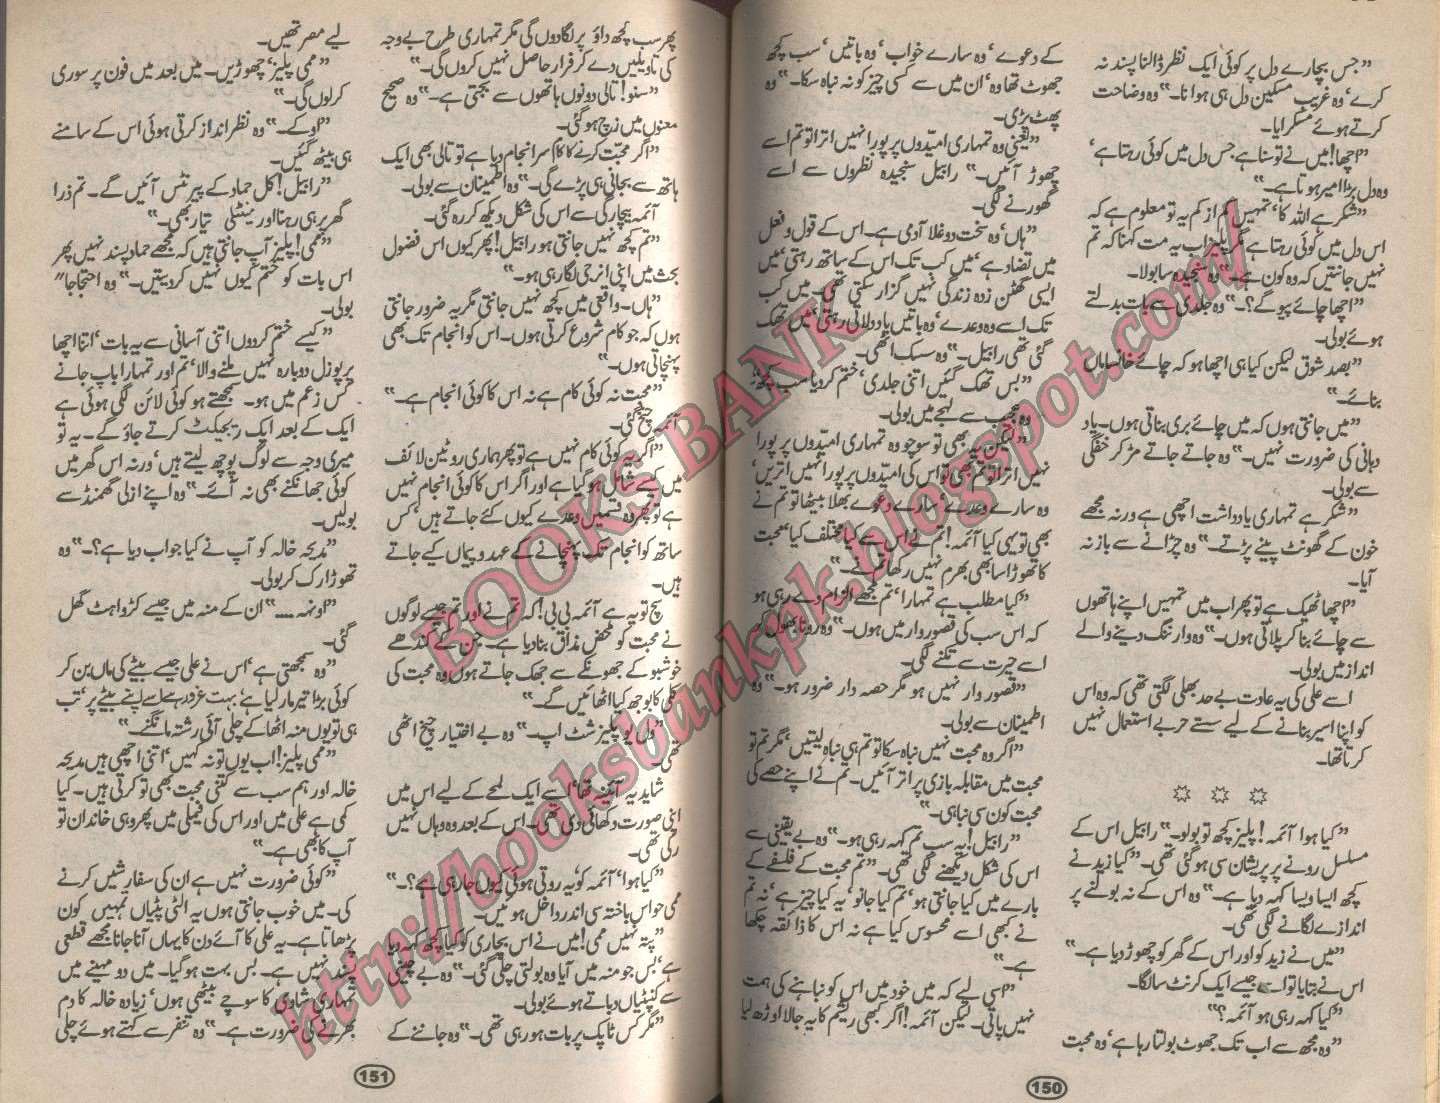 ”جس بچارے دل پر کوئی ایک نظر ڈالنا پسند نہ
کرے، وہ غریب مسکین دل ہی ہوا نا۔“ وہ وضاحت
کرتے ہوئے مسکرایا۔
”اچھا! میں نے تو سنا ہے جس دل میں کوئی رہتا ہے،
وہ دل بڑا امیر ہوتا ہے۔“
”شکر ہے اللہ کا، تمہیں کم از کم یہ تو معلوم ہے کہ
اس دل میں کوئی رہتا ہے مگر پلیز اب یہ مت کہنا کہ تم
نہیں جانتیں کہ وہ کون ہے۔“ وہ سنجیدہ سا بولا۔
”اچھا چائے پیو گے؟۔“ وہ جلدی سے بات بدلتے
ہوئے بولی۔
”بصد شوق لیکن کیا ہی اچھا ہو کہ چائے خانساماں
بنائے۔“
”میں جانتی ہوں کہ میں چائے بری بناتی ہوں۔ یاد
دہانی کی ضرورت نہیں۔“ وہ جاتے جاتے مڑ کر خفگی
سے بولی۔
”شکر ہے تمہاری یادداشت اچھی ہے ورنہ مجھے
خون کے گھونٹ پینے پڑتے۔“ وہ چڑانے سے باز نہ
آیا۔
”اچھا ٹھیک ہے تو پھر اب میں تمہیں اپنے ہاتھوں
سے چائے بنا کر پلاتی ہوں۔“ وہ وارننگ دینے والے
انداز میں بولی۔
اسے علی کی یہ عادت بے حد بھلی لگتی تھی کہ وہ اس
کو اپنا اسیر بنانے کے لیے سستے حربے استعمال نہیں
کرتا تھا۔
”کیا ہوا آئمہ! پلیز کچھ تو بولو۔“ رابیل اس کے
مسلسل رونے پر پریشان سی ہو گئی تھی۔ ”کیا زید نے
کچھ ایسا ویسا کہہ دیا ہے۔“ وہ اس کے نہ بولنے پر
اندازے لگانے لگی تھی۔
”میں نے زید کو اور اس کے گھر کو چھوڑ دیا ہے۔“
اس نے بتایا تو اسے جیسے ایک کرنٹ سا لگا۔
”کیا کہہ رہی ہو آئمہ؟“
”وہ مجھ سے اب تک جھوٹ بولتا رہا ہے، وہ محبت
کے دعوے، وہ سارے خواب، وہ باتیں، سب کچھ
جھوٹ تھا وہ، ان میں سے کسی چیز کو نہ نباہ سکا۔“ وہ
پھٹ پڑی۔
”یعنی وہ تمہاری امیدوں پر پورا نہیں اترا تو تم اسے
چھوڑ آئیں۔“ رابیل سنجیدہ نظروں سے اسے
گھورنے لگی۔
”ہاں، وہ سخت دوغلا آدمی ہے۔ اس کے قول و فعل
میں تضاد ہے، میں کب تک اس کے ساتھ رہتی، میں
ایسی گھٹن زدہ زندگی نہیں گزار سکتی تھی۔ میں کب
تک اسے وہ وعدے، وہ باتیں یاد دلاتی رہتی، میں تھک
گئی تھی رابیل۔“ وہ سسک اٹھی۔
”بس تھک گئیں اتنی جلدی، ختم کر دیا سب کچھ،“
وہ عجیب سے لہجے میں بولی۔
”لیکن یہ بھی تو سوچو وہ تمہاری امیدوں پر پورا
نہیں اترا تو تم بھی تو اس کی امیدوں پر پورا نہیں اتریں،
وہ سارے وعدے، سارے دعوے بھلا بیٹھا تو تم نے
بھی تو یہی کیا آئمہ! تم نے اس سے کیا مختلف کیا، محبت
کا تھوڑا سا بھی بھرم نہیں رکھا تم نے۔“
”کیا مطلب ہے تمہارا، تم مجھے الزام دے رہی ہو
کہ اس سب کی قصور وار میں ہوں۔“ وہ رونا بھول کر
اسے حیرت سے تکنے لگی۔
”قصور وار نہیں ہو مگر حصہ دار ضرور ہو۔“ وہ
اطمینان سے بولی۔
”اگر وہ محبت نہیں نباہ سکا تو تم ہی نباہ لیتیں، مگر تم تو
محبت میں مقابلہ بازی پر اتر آئیں۔ تم نے اپنے حصے کی
محبت کون سی نباہی۔“
”رابیل! یہ سب تم کہہ رہی ہو۔“ وہ بے یقینی سے
اس کی شکل دیکھنے لگی تھی۔ ”تم محبت کے فلسفے کے
بارے میں کیا جانتی ہو، تم کیا جانو، یہ کیا چیز ہے، نہ تم
نے کبھی اسے محسوس کیا ہے نہ اس کا ذائقہ چکھا
ہے۔“
”اسی لیے کہ میں خود میں اس کو نباہنے کی ہمت
نہیں پاتی۔ لیکن آئمہ! اگر کبھی ریشم کا یہ جالا اوڑھ لیا
150
پھر سب کچھ داؤ پر لگا دوں گی مگر تمہاری طرح بے وجہ
کی تاویلیں دے کر فرار حاصل نہیں کروں گی۔“
”سنو! تالی دونوں ہاتھوں سے بجتی ہے۔“ وہ صحیح
معنوں میں زچ ہو گئی۔
”اگر محبت کرنے کا کام سرانجام دیا ہے تو تالی بھی ایک
ہاتھ سے بجانی ہی پڑے گی۔“ وہ اطمینان سے بولی۔
آئمہ بیچارگی سے اس کی شکل دیکھ کر رہ گئی۔
”تم کچھ نہیں جانتی ہو رابیل! پھر کیوں اس فضول
بحث میں اپنی انرجی لگا رہی ہو۔“
”ہاں۔ واقعی میں کچھ نہیں جانتی مگر یہ ضرور جانتی
ہوں کہ جو کام شروع کرتی ہوں۔ اس کو انجام تک بھی
پہنچاتی ہوں۔“
”محبت نہ کوئی کام ہے نہ اس کا کوئی انجام ہے۔“
آئمہ چیخ گئی۔
”اگر یہ کوئی کام نہیں ہے تو پھر ہماری روٹین لائف
میں کیسے شامل ہو گیا ہے اور اگر اس کا کوئی انجام نہیں
ہے تو پھر وہ قسمیں وعدے کیوں کئے جاتے ہیں، کس
ساتھ کو انجام تک پہنچانے کے عہد و پیماں کیے جاتے
ہیں۔
سچ تو یہ ہے آئمہ بی بی! کہ تم نے اور تم جیسے لوگوں
نے محبت کو محض مذاق بنا دیا ہے۔ جن کے کندھے
خوشبو کے جھونکے سے جھک جاتے ہوں وہ محبت کی
کلی کا بوجھ کیا اٹھائیں گے۔“
”ول یو پلیز شٹ اپ۔“ وہ بے اختیار چیخ اٹھی
تھی۔
شاید یہ آئینہ تھا، اسے ایک لمحے کے لیے اس میں
اپنی صورت دکھائی دی تھی۔ اس کے بعد وہ وہاں نہیں
رکی تھی۔
”کیا ہوا، آئمہ کو، یہ روتی ہوئی کیوں جا رہی ہے؟۔“
ممی حواس باختہ سی اندر داخل ہوئیں۔
”پتہ نہیں ممی! میں نے اس بچاری کو کیا کچھ کہہ دیا
ہے، بس جو منہ میں آیا وہ بولتی چلی گئی۔“ وہ بے چینی
سے کنپٹیاں دباتے ہوئے بولی۔
”مگر کس ٹاپک پر بات ہو رہی تھی۔“ وہ جاننے کے
لیے مصر تھیں۔
”ممی پلیز، چھوڑیں۔ میں بعد میں فون پر سوری
کر لوں گی۔“
”اوکے۔“ وہ نظر انداز کرتی ہوئی اس کے سامنے
ہی بیٹھ گئیں۔
”رابیل! کل حماد کے پیرنٹس آئیں گے۔ تم ذرا
گھر پر ہی رہنا اور مینٹلی تیار بھی۔“
”ممی! پلیز آپ جانتی ہیں کہ مجھے حماد پسند نہیں پھر
اس بات کو ختم کیوں نہیں کر دیتیں۔“ وہ احتجاجاً
بولی۔
”کیسے ختم کر دوں اتنی آسانی سے یہ بات، اتنا اچھا
پرپوزل دوبارہ نہیں ملنے والا، تم اور تمہارا باپ جانے
کس زعم میں ہو۔ سمجھتے ہو کوئی لائن لگی ہوئی ہے
ایک کے بعد ایک ریجیکٹ کرتے جاؤ گے۔ یہ تو
میری وجہ سے لوگ پوچھ لیتے ہیں، ورنہ اس گھر میں
کوئی جھانکنے بھی نہ آئے۔“ وہ اپنے ازلی گھمنڈ سے
بولیں۔
”مدیحہ خالہ کو آپ نے کیا جواب دیا ہے؟۔“ وہ
تھوڑا رک کر بولی۔
”اونہہ ....“ ان کے منہ میں جیسے کڑواہٹ گھل
گئی۔
”وہ سمجھتی ہے، اس نے علی جیسے بیٹے کی ماں بن کر
کوئی بڑا تیر مار لیا ہے، بہت غرور ہے اسے اپنے بیٹے پر تب
ہی تو یوں منہ اٹھا کے چلی آئی رشتہ مانگنے۔“
”ممی پلیز! اب یوں تو نہ کہیں، اتنی اچھی ہیں مدیحہ
خالہ اور ہم سب سے کتنی محبت بھی تو کرتی ہیں۔ کیا
کمی ہے علی میں اور اس کی فیملی میں پھر وہی خاندان تو
آپ کا بھی ہے۔“
”کوئی ضرورت نہیں ہے ان کی سفارشیں کرنے
کی۔ میں خوب جانتی ہوں یہ الٹی پٹیاں تمہیں کون
پڑھاتا ہے۔ یہ علی کا آئے دن کا یہاں آنا جانا مجھے قطعی
پسند نہیں ہے۔ بس بہت ہو گیا۔ میں دو مہینے میں
تمہاری شادی کا سوچے بیٹھی ہوں، زیادہ خالہ کا دم
بھرنے کی ضرورت ہے۔“ وہ تنفر سے کہتے ہوئے چلی
151
BOOKS BANK
http://booksbankpk.blogspot.com/